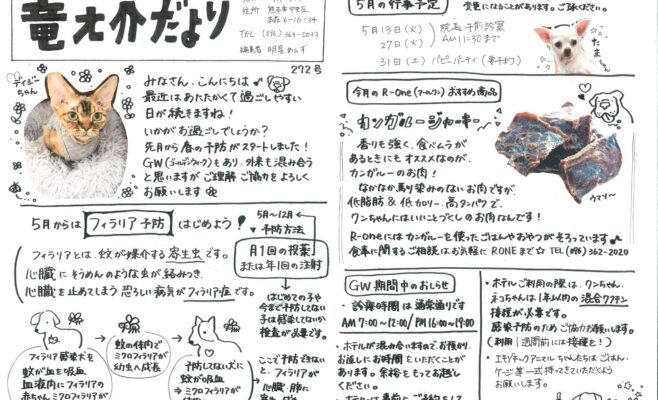 竜之介だより
住所 熊本市中央区
TEL (096) 363-0033
272号
デイジーちゃん
みなさん、こんにちは
最近はあたたかくて過ごしやすい
日が続きますね!
いかがお過ごしでしょうか?
先月から春の予防がスタートしました!
GW(ゴールデンウィーク)もあり、外来も混み合う
と思いますが ご理解 ご協力をよろしく
お願いします
5月からは フィラリア予防 はじめよう!
5月〜12月
予防方法
月1回の投薬
または年1回の注射
フィラリアとは、蚊が媒介する寄生虫です。
心臓にそうめんのような虫が絡みつき、
心臓を止めてしまう恐ろしい病気がフィラリア症です。
はじめての子や
今まで予防していない
子は感染してないか
検査が必要です。
フィラリア感染犬を
蚊が血を吸血
血液内にフィラリアの
赤ちゃん ミクロフィラリアが
蚊の体内で
ミクロフィラリアが
幼虫へ成長
予防してない犬に
蚊が吸血
⇒ミクロフィラリアが
ここで予防できない
と、フィラリアが
心臓・肺に
5月の行事予定
変更になることがあります。ご了承ください。
5月13日(火)
27日(火)
院長 午前診察
AM 11:30まで
31日(土) パピーパーティ(要予約)
たまちゃん
今月の R-one(アールワン) おすすめ商品
カンガルージャーキー
香りも強く、食べムラが
あるときにも オススメなのが、
カンガルーのお肉!
なかなか馴染みのないお肉ですが、
低脂肪 & 低カロリー、高タンパクで、
ワンちゃんにはいいことづくしのお肉なんです!
R-oneにはカンガルーを使ったごはんやおやつがそろっています
食事に関するご相談はお気軽に R.ONEまで☆ TEL (096) 362-2020
ウマッ〜
GW期間中のおしらせ
・診療時間は通常通りです
AM 9:00〜12:00/PM 16:00〜19:00
・ホテルが混み合いますので、お預かり、
お返しにお時間をいただくことが
あります。余裕をもってお越し
ください。
・ホテルは事前にご予約をして
・ホテルご利用の際は、ワンちゃん、
ネコちゃんは1年以内の混合ワクチン
接種が必要です。
感染予防のためご協力お願いします。
(利用1週間前には接種を!)
・エキゾチックアニマルちゃんたちはごはん・
ケージ等一式持ってきていただくよう
お願いします。